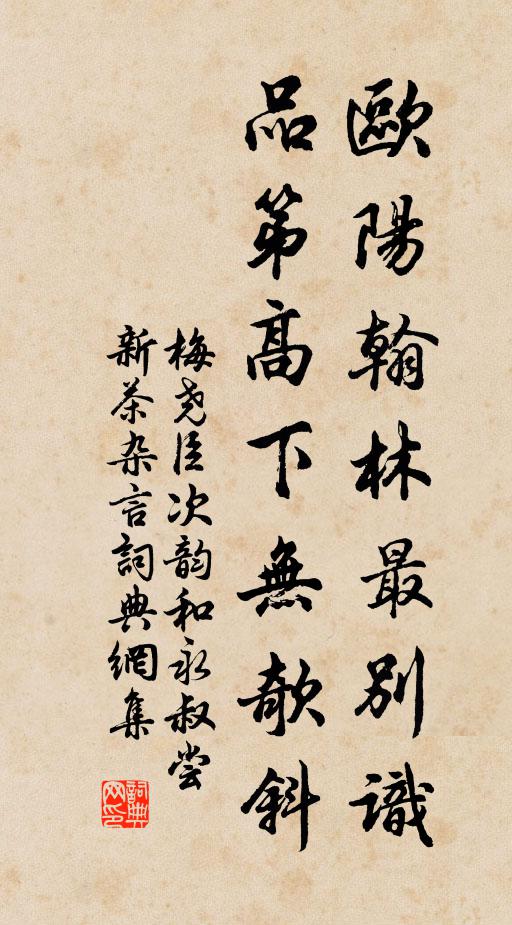 歐陽翰林最別識
品第高下無欹斜
梅尧臣次韵和永叔尝
新茶杂言詞典網集
詞典
网印